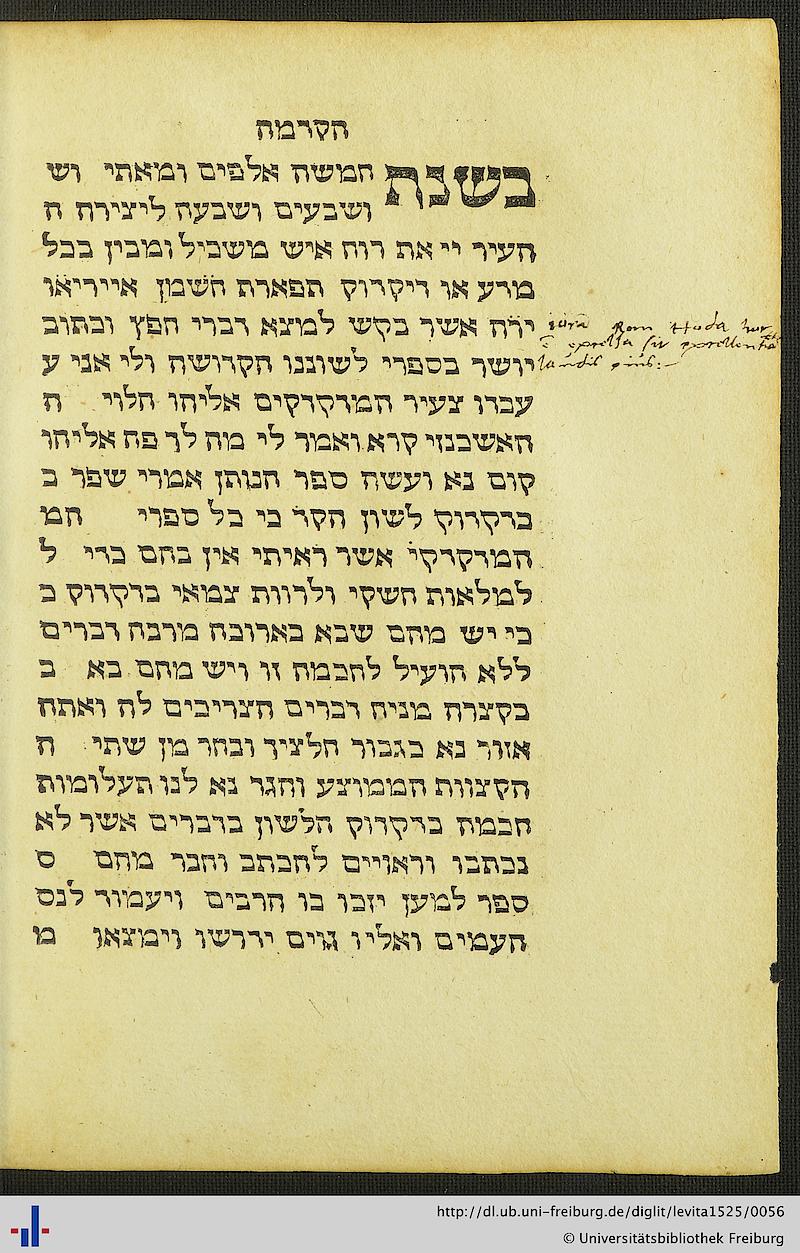 הקדמה
בשנת חמשה אלפים ומאתי וש
ושבעים ושבעה ליצירה ה
העיר יי את רוח איש משכיל ומבין בכל
מדע או דיקדוק תפארת חשמן אייריאו
ירה אשר בקש למצא דברי חפץ וכתוב
יושר בספרי לשוננו הקדושה ולי אני ע
עבדו צעיר המדקדקים אליהו הלוי ה
האשכנזי קרא ואמר לי מה לך פה אליהו
קום נא ועשה ספר הנותן אמרי שפר ב
בדקדוק לשון הקד כי כל ספרי המ
המדקדקי אשר ראיתי אין בהם כדי ל
למלאות חשקי ולרוות צמאי בדקדוק כ
כי יש מהם שבא בארוכה מרבה דברים
ללא הועיל לחכמה זו ויש מהם בא ב
בקצרה מניח דברים הצריכים לה ואתה
אזור נא כגבור חלציך ובחר מן שתי ה
הקצוות הממוצע והגד נא לנו תעלומות
חכמת בדקדוק הלשון בדברים אשר לא
נכתבו וראויים להכתב וחבר מהם ס
ספר למען יזכו בו הרבים ויעמוד לנס
העמים ואליו גוים ידרושו וימצאו מ
http://dl.ub.uni-freiburg.de/diglit/levita1525/0056
© Universitätsbibliothek Freiburg